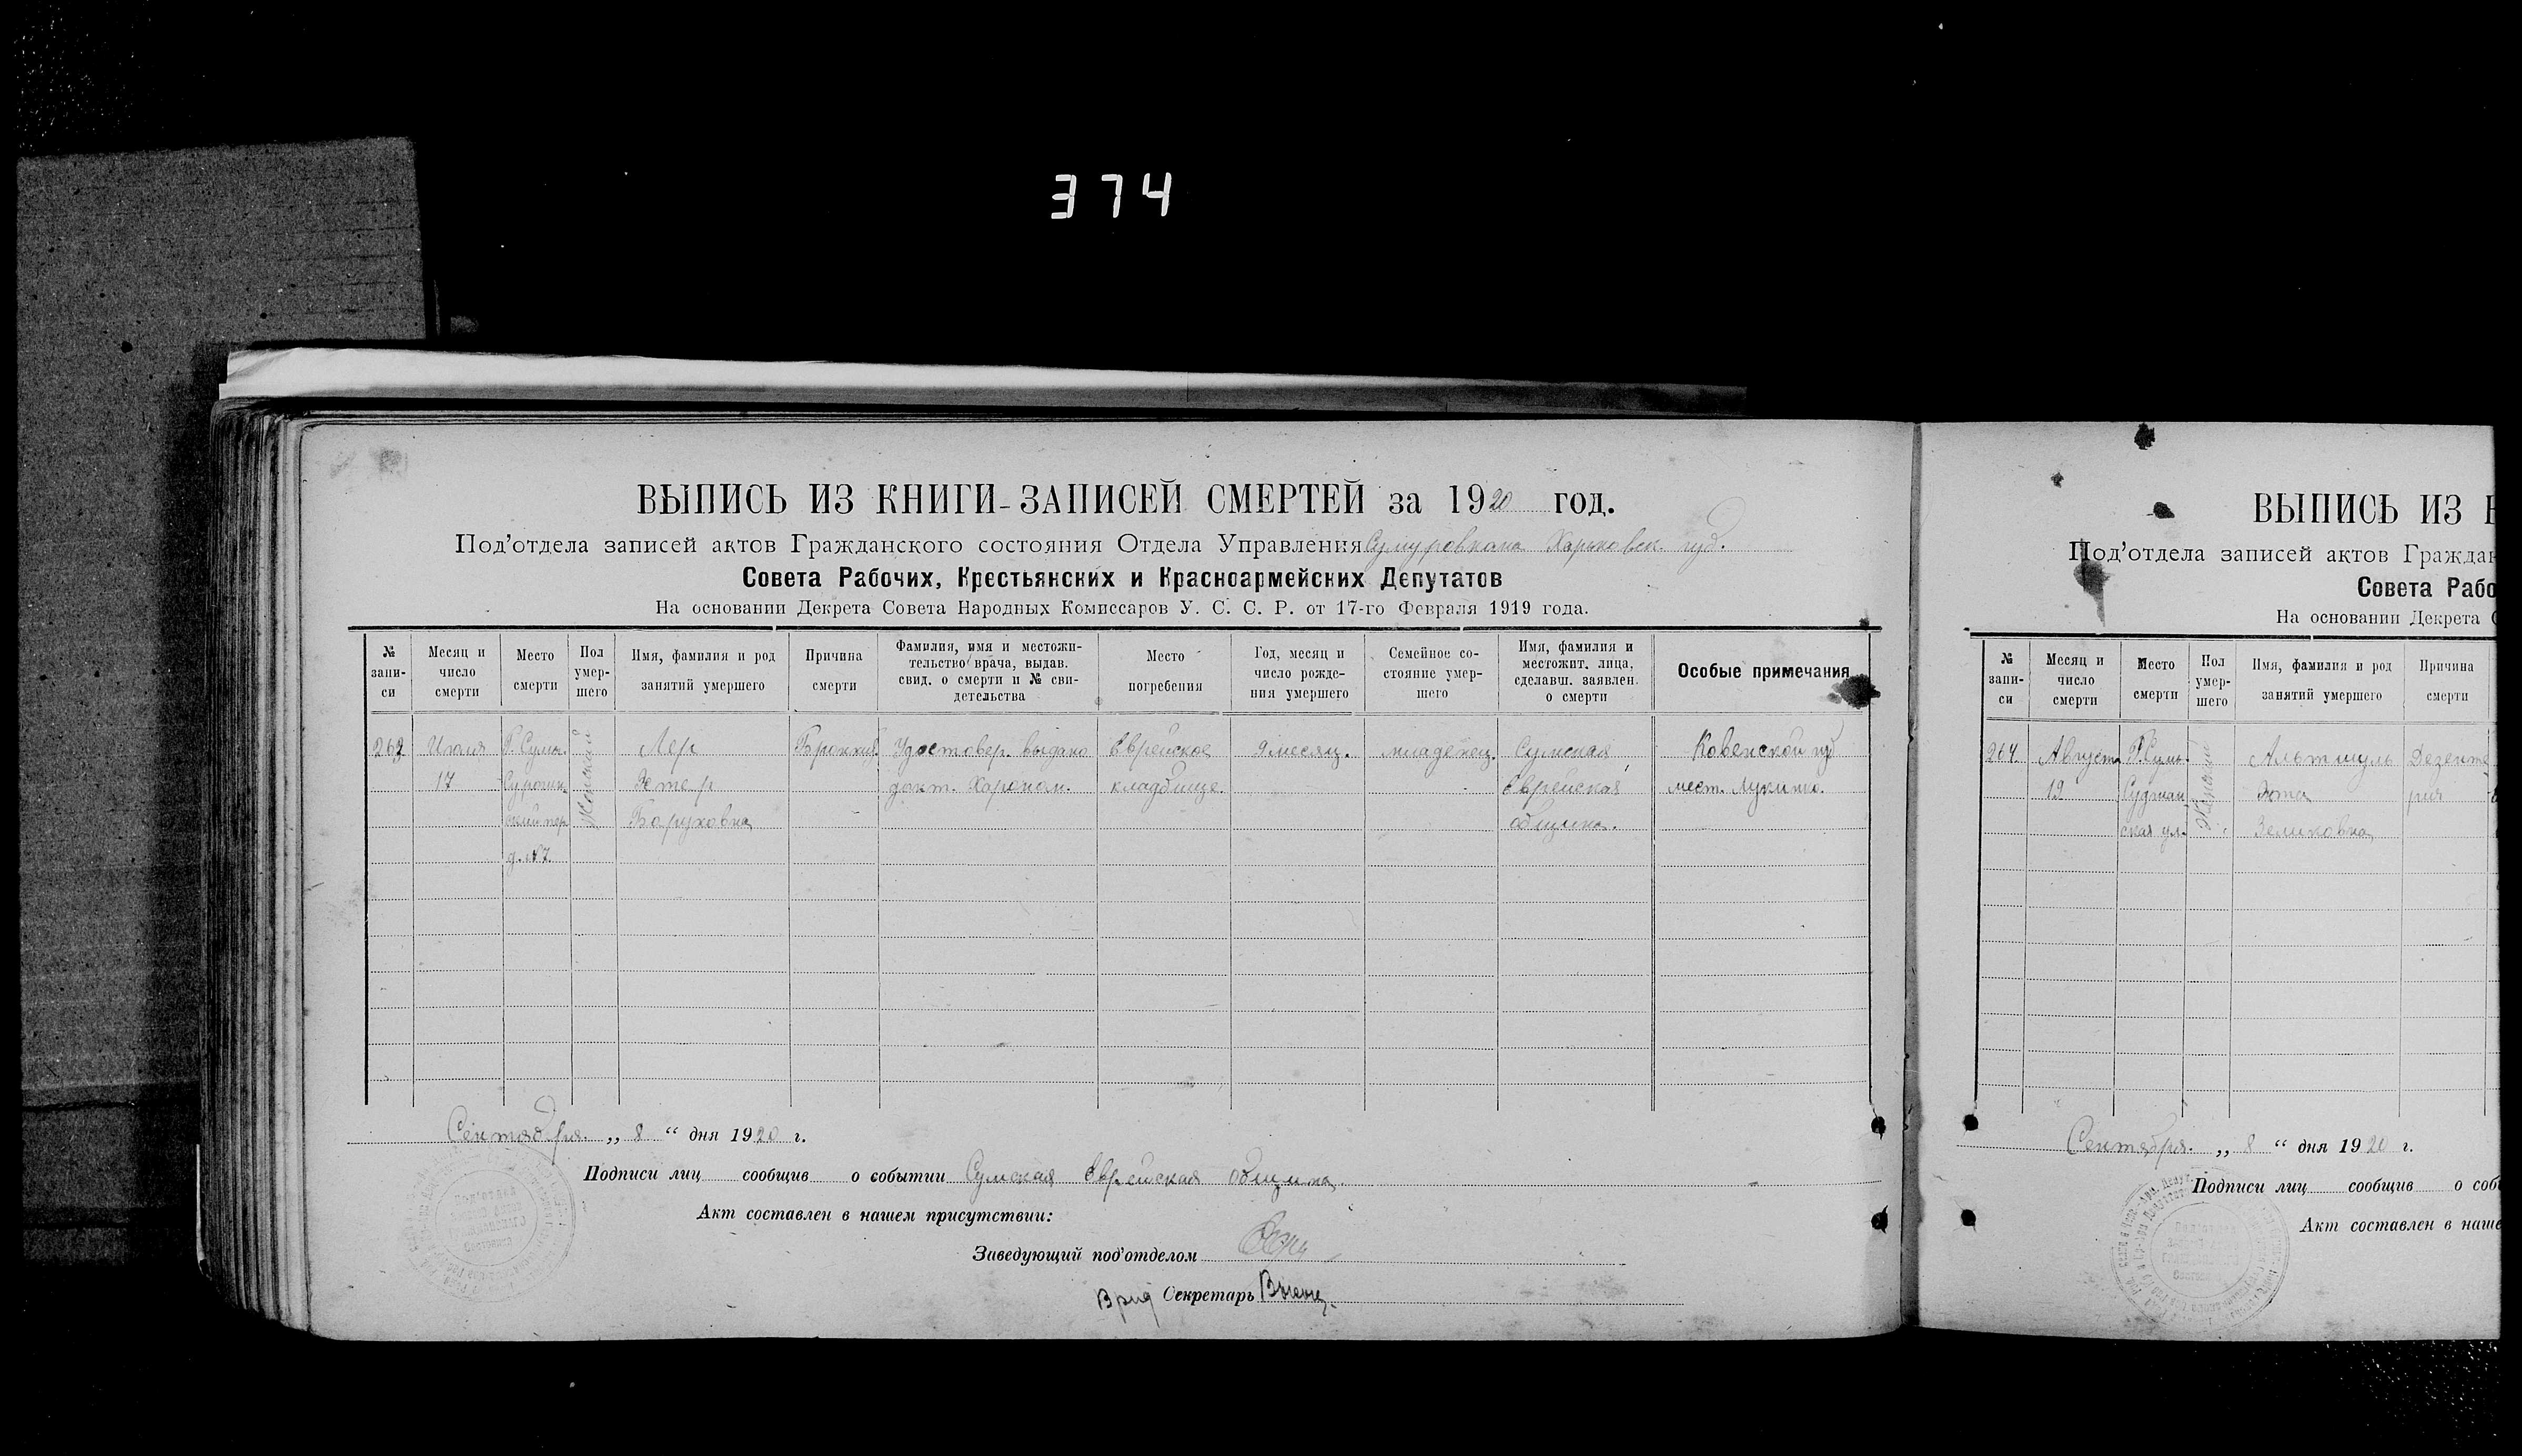 374
ВЫПИСЬ ИЗ КНИГИ-ЗАПИСЕЙ СМЕРТЕЙ за 1920 год.
Под'отдела записей актов Гражданского состояния Отдела Управления Сумуровкома Харьковск. губ.
Совета Рабочих, Крестьянских и Красноармейских Депутатов
На основании Декрета Совета Народных Комиссаров У. С. С. Р. от 17-го Февраля 1919 года.
№ запи-
си
Месяц и
число
смерти
Место
смерти
Пол
умер-
шего
Имя, фамилия и род
занятий умершего
Причина
смерти
Фамилия, имя и местожи-
тельство врача, выдав.
свид. о смерти и № сви-
детельства
Место
погребения
Год, месяц и
число рожде-
ния умершего
Семейное со-
стояние умер-
шего
Имя, фамилия и
местожит. лица,
сделавш. заявлен.
о смерти
Особые примечания
263
Июля
17
Г. Сумы.
д. №7.
Женский
Лер
Эстер
Баруховна
Бронхит.
Удостовер. выдано
докт.
Еврейское
кладбище.
9 месяц.
младенец.
Сумская
Еврейская
община.
Ковенской губ
мест.
Сентября. „ 8 “ дня 1920 г.
Подписи лиц сообщив о событии Сумская Еврейская община.
Акт составлен в нашем присутствии:
Заведующий под'отделом
Врид Секретарь
ВЫПИСЬ ИЗ
Под'отдела записей актов Граждан
Совета Рабо
На основании Декрета
№
запи-
си
Месяц и
число
смерти
Место
смерти
Пол
умер-
шего
Имя, фамилия и род
занятий умершего
Причина
смерти
264.
Августа
19
Г. Сумы.
Суджан
ская ул.
Женский
Альтшуль
Зеликовна
Дезенте
рия
Сентября. „ 8 “ дня 1920 г.
Подписи лиц сообщив о соб
Акт составлен в наше